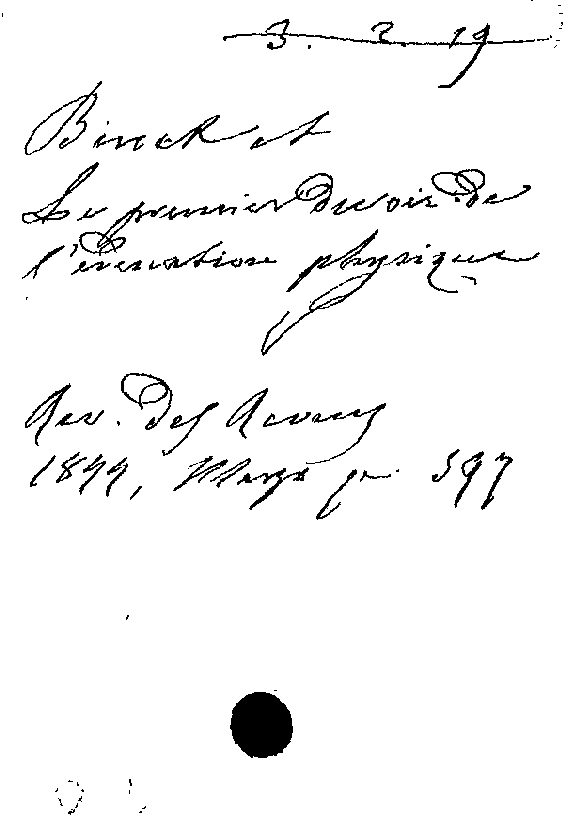 3. 2. 19
Binet et
Le premier devoir de
l'éducation physique
Rev. des Revues
1899, Mars p. 597